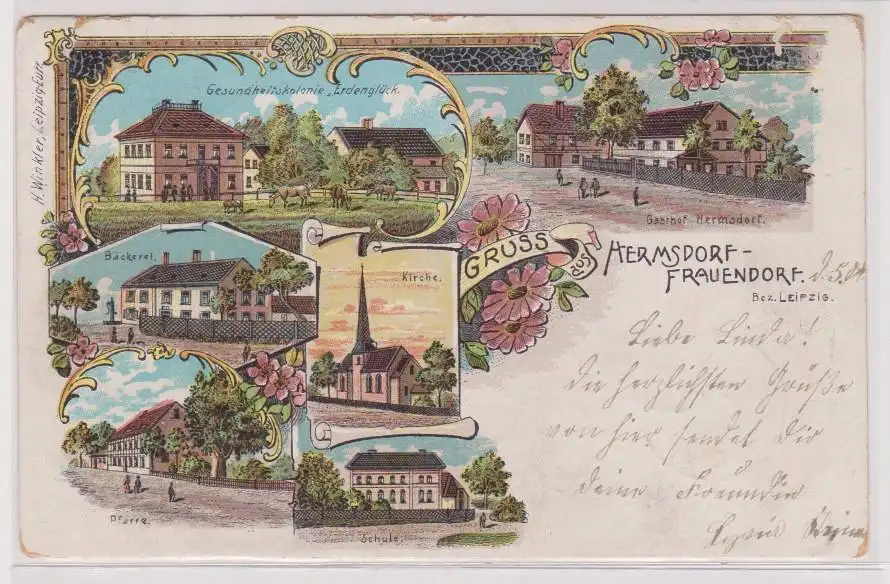 H. Winkler, Leipzig-Eutr.
Gesundheitskolonie „Erdenglück.
Gasthof Hermsdorf.
Bäckerei.
Kirche.
GRUSS aus
HERMSDORF-
FRAUENDORF.
Bez. LEIPZIG.
Pfarre.
Schule.
d. 5.
Liebe Linda!
die herzlichsten Grüße
von hier sendet Dir
deine Freundin